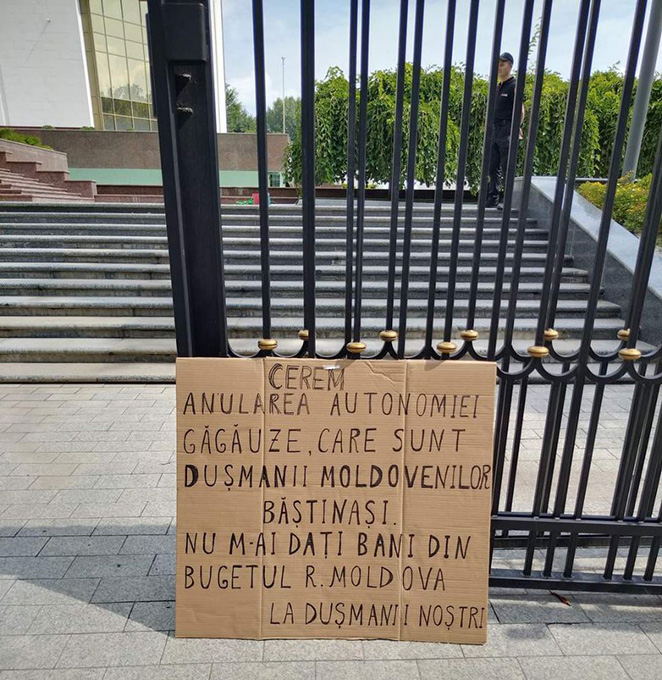 CEREM
ANULAREA AUTONOMIEI
GĂGĂUZE, CARE SUNT
DUȘMANII MOLDOVENILOR
BĂȘTINAȘI.
NU M-AI DAȚI BANI DIN
BUGETUL R. MOLDOVA
LA DUȘMANII NOȘTRI